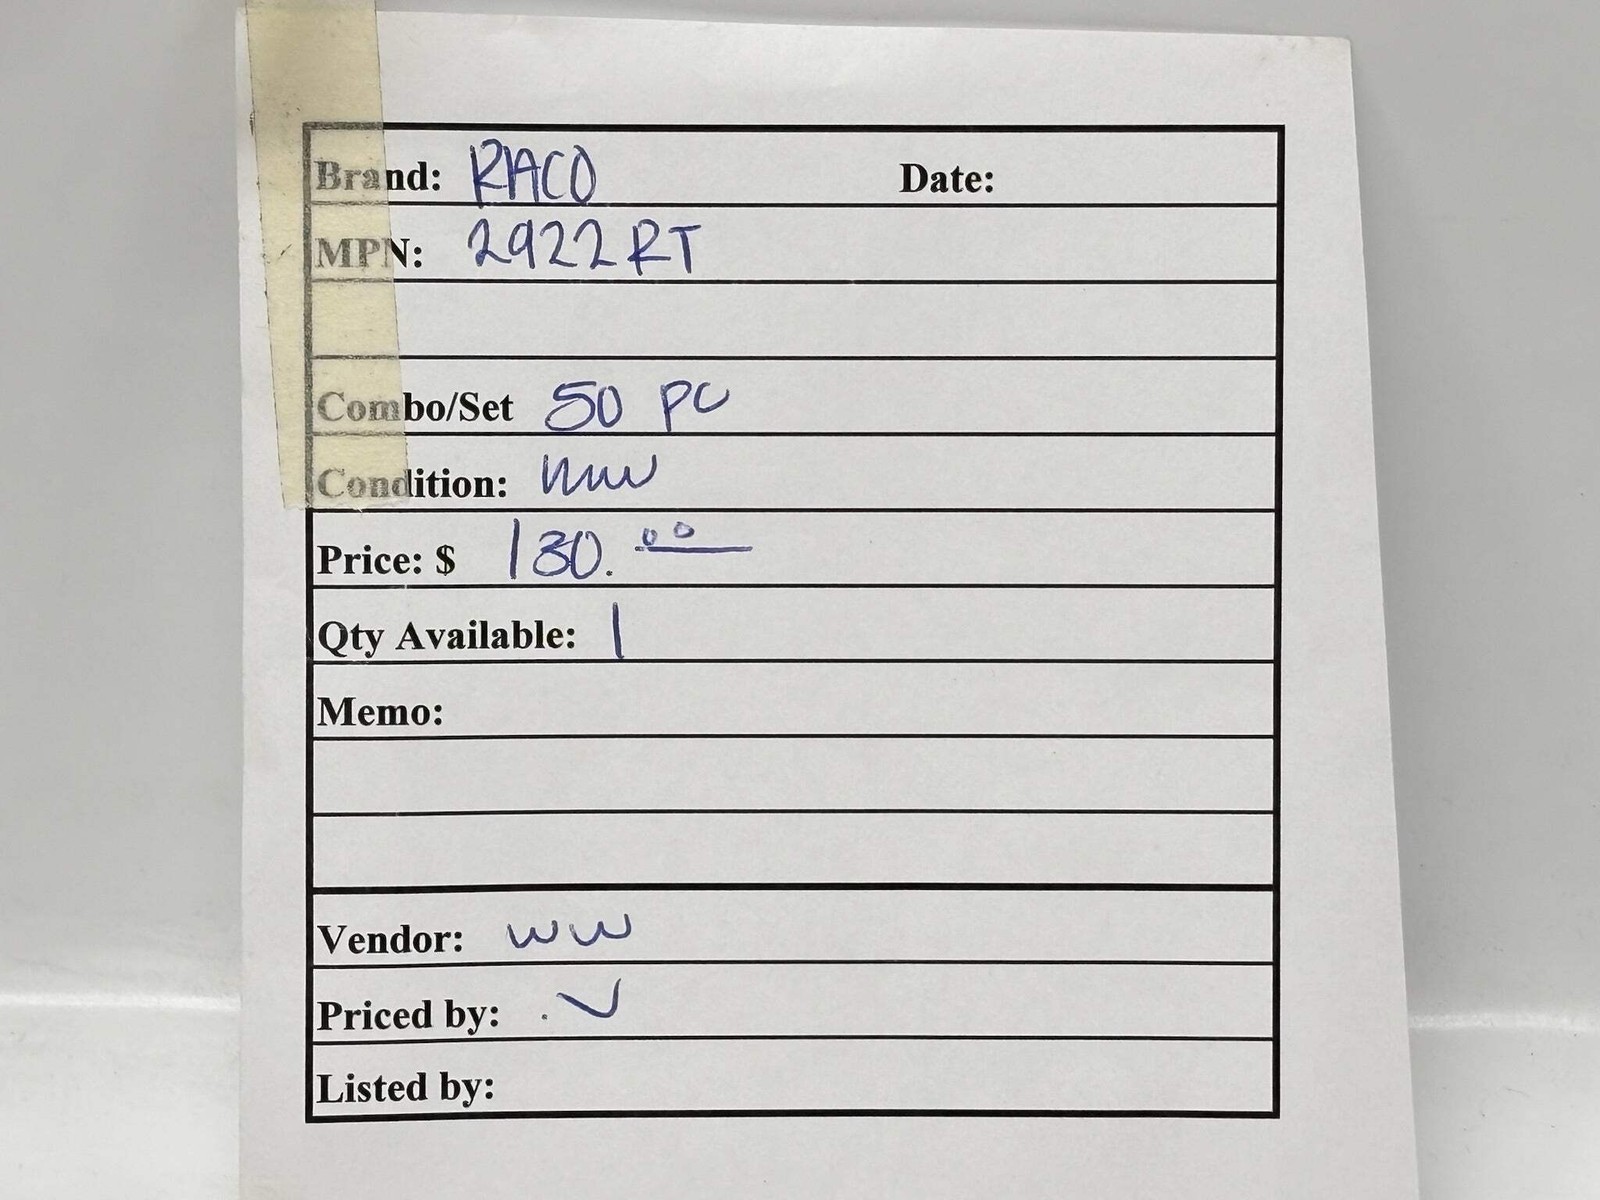 Brand: RACO Date:
MPN: 2922RT
Combo/Set 50 PC
Condition:
Price: $ 130.00
Qty Available: 1
Memo:
Vendor: WW
Priced by: V
Listed by: